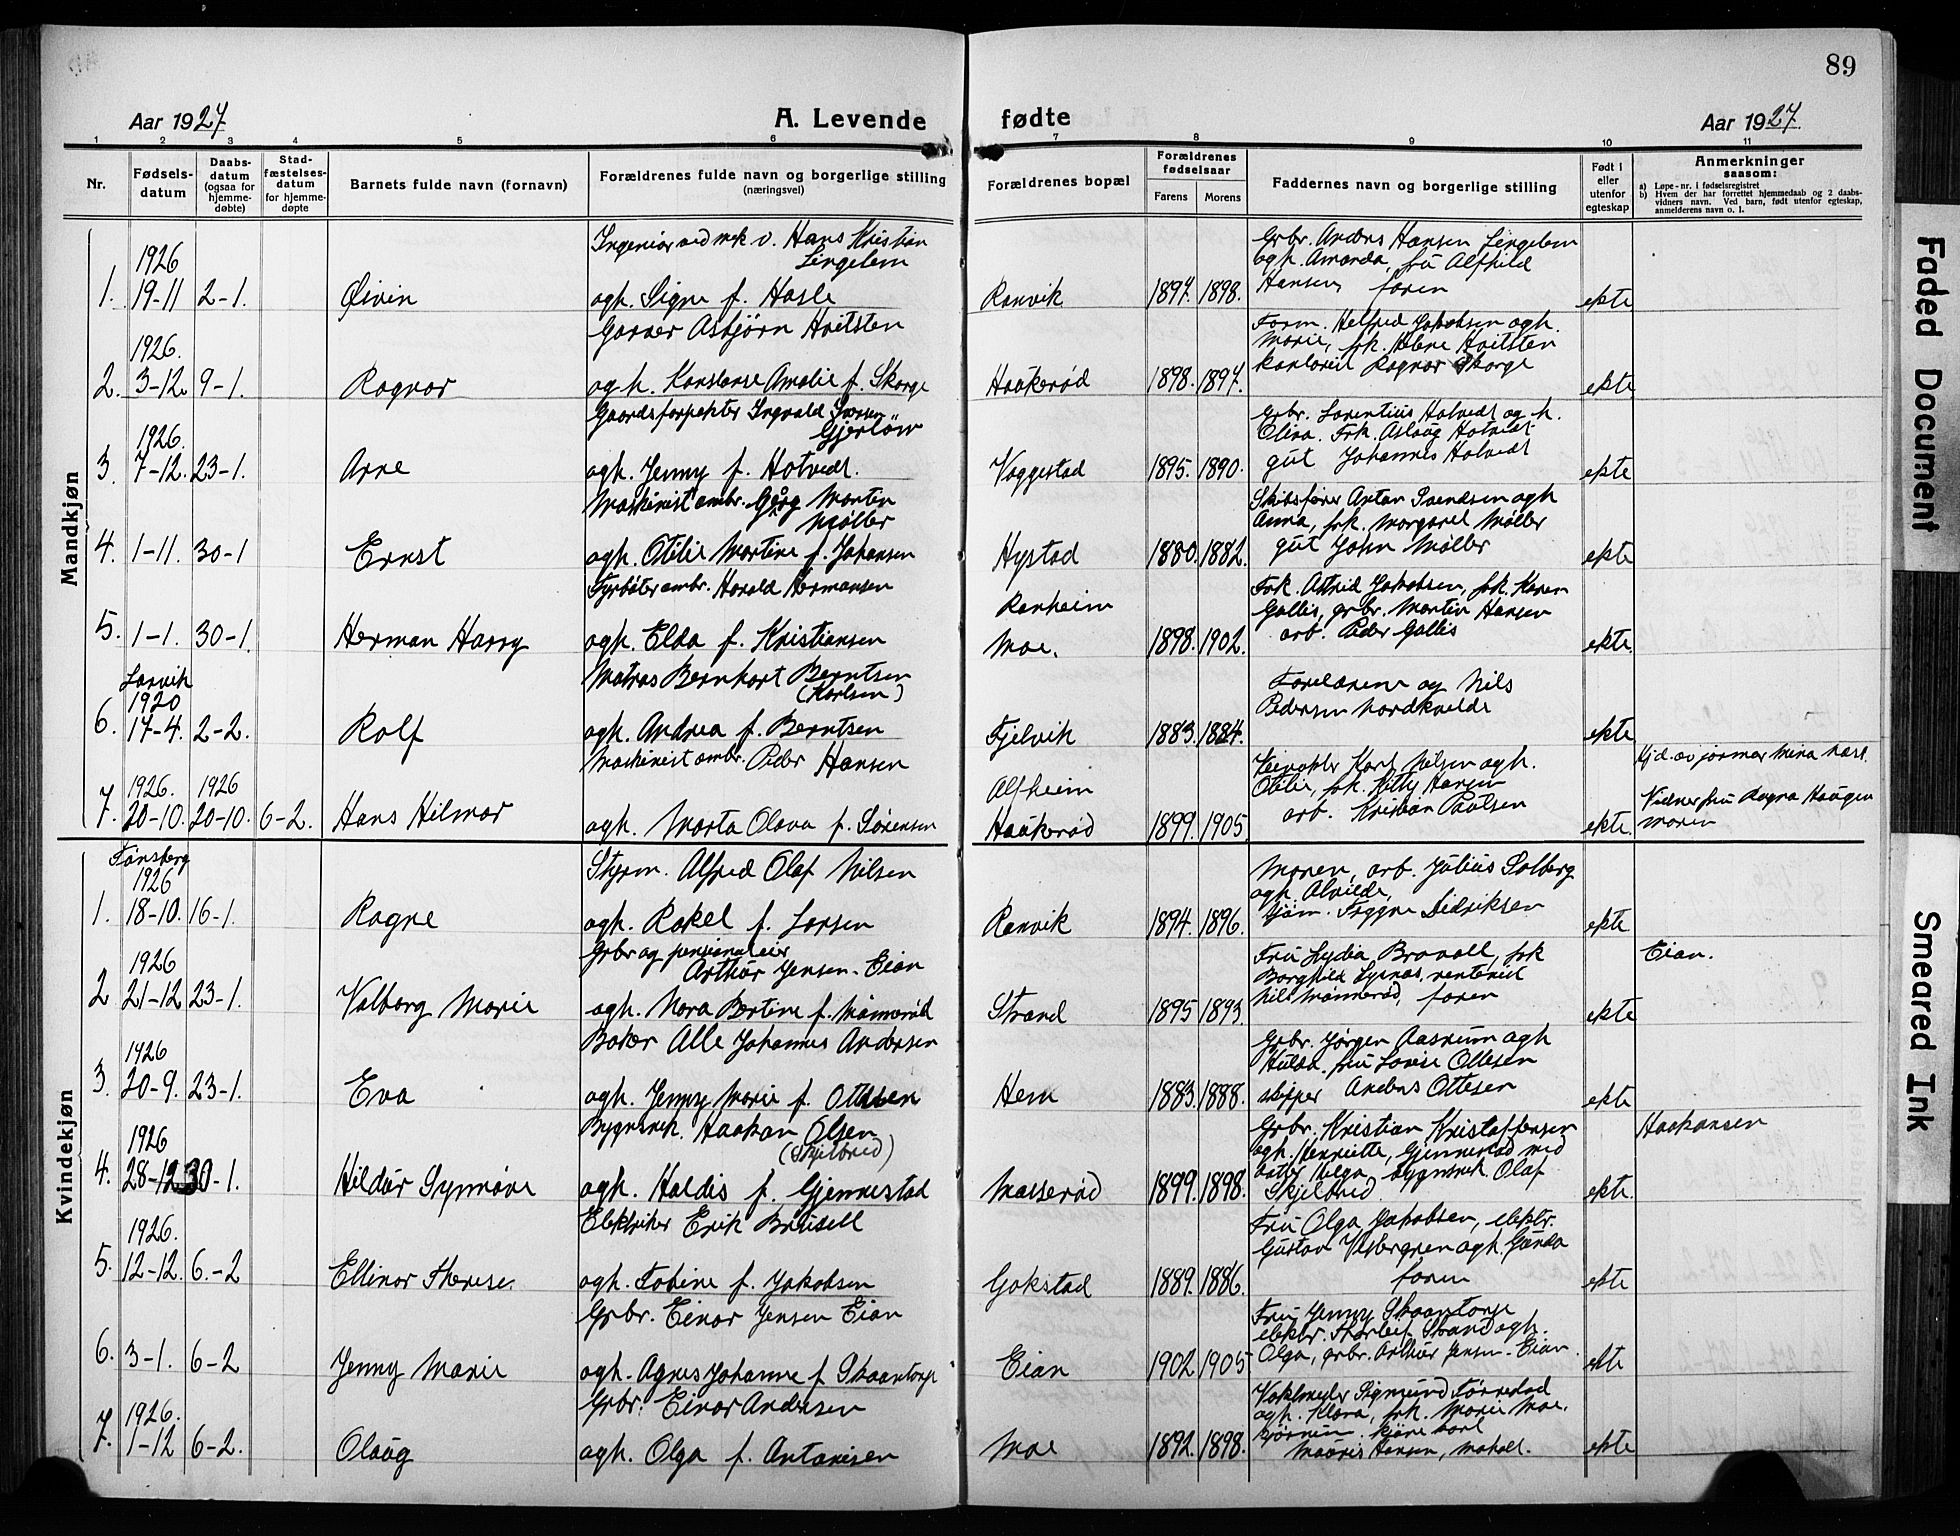 89
Aar 1927
A. Levende
fødte
Aar 1927.
1 2 3 4 5 6 7 8 9 10 11
Nr.
Fødsels-
datum
Daabs-
datum
(ogsaa for
hjemme-
døbte)
Stad-
fæstelses-
datum
for hjemme-
døpte
Barnets fulde navn (fornavn)
Forældrenes fulde navn og borgerlige stilling
(næringsvei)
Forældrenes bopæl
Forældrenes
fødselsaar
Farens
Morens
Faddernes navn og borgerlige stilling
Født i
eller
utenfor
egteskap
Anmerkninger
saasom:
a) Løpe-nr. i fødselsregistret
b) Hvem der har forrettet hjemmedaab og 2 daabs-
vidners navn. Ved barn, født utenfor egteskap,
anmelderens navn o. l.
Mandkjøn
1.
1926
19-11
2-1.
Øivin
Ingeniør ved mek v. Hans Kristian
Lingelem
ogh. Signe f. Hasle
Ranvik
1897.
1898.
Grbr. Anders Hansen Lingelem
ogh. Amanda, fru Alfhild
Hansen, faren
ekte
2.
1926.
3-12.
9-1.
Ragnar
Garver Asbjørn Hvitsten
ogh. Konstanse Amalie f. Skorge
Haukerød
1898.
1897.
Form. Helfred Jakobsen ogh.
Marie, frk. Helene Hvitsten
kontorist Ragnar Skorge
ekte
3.
1926.
7-12.
23-1.
Arne
Gaardsforpakter Ingvald Iversen
Gjerløw
ogh. Jenny f. Hotvedt.
Vaggestad
1895.
1890.
Grbr. Larentius Hotvedt og h.
Elina. Frk. Aslaug Hotvedt
gut Johannes Hotvedt
ekte
4.
1-11.
30-1
Ernst
Maskinist ombr. Georg Morten
Møller
ogh. Otilie Martine f. Johansen
Hystad
1880.
1882.
Skibsfører Anton Svendsen ogh
Anna, frk. Margaret Møller
gut John Møller
ekte
5.
1-1.
30-1.
Herman Harry
Fyrbøter ombr. Harald Hermansen
ogh. Elda f. Kristiansen
Ranheim
Moe.
1898.
1902.
Frk. Astrid Jakobsen, frk. Karen
Gallis, grbr. Martin Hansen
arb. Peder Gallis
ekte.
6.
Larvik
1920
17-4.
2-2.
Rolf
Matros Bernhart Berntsen
(Karlsen)
ogh. Andrea f. Berntsen
Fjelvik
1883.
1884.
Forelærene og Nils
Pedersen Nordkvelde
ekte
7.
1926.
20-10.
1926
20-10.
6-2.
Hans Hilmar
Maskinist ombr. Peder Hansen
ogh. Marta Olava f. Sørensen
Alfheim
Haukerød
1899.
1905.
Karl Nilsen ogh.
Otilie, frk. Kitty Hansen
arb. Kristian Paulsen
ekte.
Hjd. av jormor Mina Næse.
Vidner fru Ragna Haugen
moren
Kvindekjøn
1.
Tønsberg
1926
18-10.
16-1.
Ragne
Styrm. Alfred Olaf Nilsen
ogh. Rakel f. Larsen
Ranvik
1894.
1896.
Moren, arb. Julius Solberg
ogh. Alvilde,
Tryggve Didriksen
ekte
2
1926
21-12
23-1.
Valborg Marie
Grbr og pensionateier
Arthur Jensen-Eian
ogh. Nora Bertine f. Mannerød
Strand
1895
1893.
Fru Lydia Bravoll, frk
Borghild rentenist
Nils Mannerød, faren
ekte
Eian.
3.
1926
20-9.
23-1.
Eva
Baker Alle Johannes Andersen
ogh. Jenny Marie f. Ottesen
Hem
1883.
1888.
Grbr. Jørgen Aasrum ogh
Hulda. fru Lovise Ottesen
skipper Anders Ottesen
ekte
4.
1926
28-12
30-1.
Hildur Synnøve
Bygnsnek. Haakon Olsen
(Skjelbred)
ogh. Haldis f. Gjennestad
Massერød
1899.
1898.
Grbr. Kristian Kristoffersen
ogh. Henriette, Gjennestad med
datter Helga, bygnsnek. Olaf
Skjelbred
ekte.
Haakonsen
5.
1926.
12-12.
6.-2
Ellinor Therese.
Elektriker Erik Brusell
ogh. Tobine f. Jakobsen
Gokstad
1889.
1886.
Fru Olga Jakobsen, elektr.
Gustav Vesbergren ogh. Gunda
faren
ekte
6.
3-1.
6-2
Jenny Marie
Grbr. Einar Jensen Eian
ogh. Agnes Johanne f. Skaantorp
Eian
1902.
1905
Fru Jenny Skaantorp
elektr. Thorleif Strand ogh.
Olga, grbr. Arthur Jensen-Eian.
ekte
7.
1926.
1-12
6-2.
Olaug
Grbr. Einar Andersen
ogh. Olga f. Antonisen
Moe
1892.
1898.
Vaktmester Sigmund Tørrestad
ogh. Klara, frk. Marie Moe.
Mauris Hansen,
ekte
Faded Document
Smeared Ink